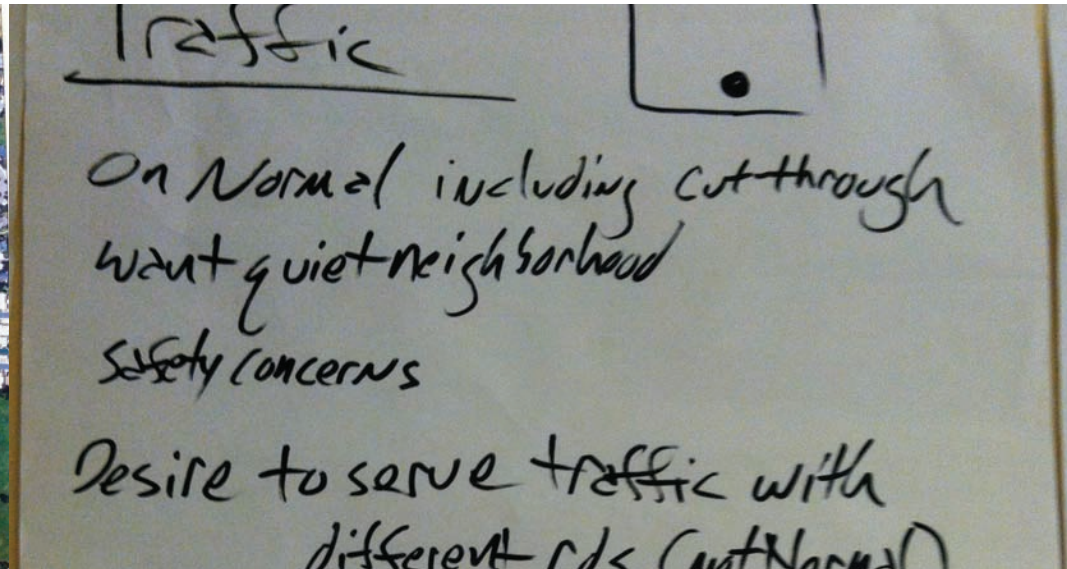 Traffic
On Normal including cut-through
want quiet neighborhood
safety concerns
Desire to serve traffic with
different rds (not Normal)